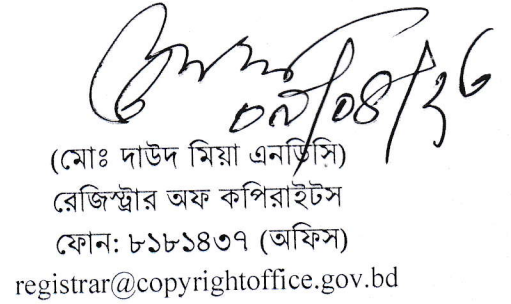 (মোঃ দাউদ মিয়া এনডিসি)
রেজিস্ট্রার অফ কপিরাইটস
ফোন: ৮১৮১৪৩৭ (অফিস)
registrar@copyrightoffice.gov.bd